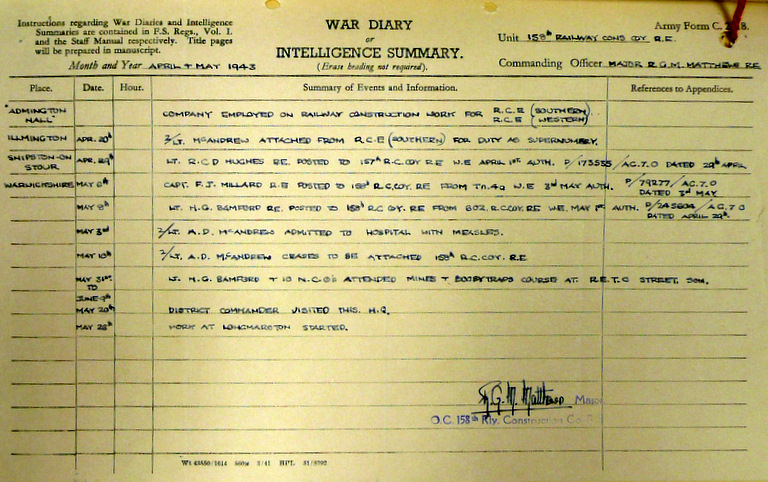 Instructions regarding War Diaries and Intelligence
Summaries are contained in F.S. Regs., Vol. I.
and the Staff Manual respectively. Title pages
will be prepared in manuscript.
Month and Year APRIL + MAY 1943
WAR DIARY
or
INTELLIGENCE SUMMARY.
(Erase heading not required).
Army Form C. 2118.
Unit 158th RAILWAY CONS COY R.E.
Commanding Officer MAJOR R.G.M. MATTHEWS RE
Place. Date. Hour. Summary of Events and Information. References to Appendices.
"ADMINGTON HALL" COMPANY EMPLOYED ON RAILWAY CONSTRUCTION WORK FOR R.C.E (SOUTHERN)
R.C.E (WESTERN)
ILLMINGTON APR. 20th 2/LT. McANDREW ATTACHED FROM R.C.E (SOUTHERN) FOR DUTY AS SUPERNUMERY.
SHIPSTON-ON STOUR APR. 29th LT. R.C.D HUGHES RE. POSTED TO 157th R.C.COY RE W.E APRIL 1st. AUTH. P/173555/AG.7.O DATED 29th APRIL
WARWICKSHIRE MAY 6th CAPT. F.J. MILLARD R.E POSTED TO 158th R.C.COY. RE FROM Tn.4a W.E 3rd MAY AUTH. P/79277/AG.7.O
DATED 3rd MAY
MAY 8th LT. H.G. BAMFORD RE. POSTED TO 158th R.C COY. RE FROM 802. R.C.COY.RE WE. MAY 1st AUTH. P/245604/AG.7 O
DATED APRIL 29th.
MAY 3rd 2/LT. A.D. McANDREW ADMITTED TO HOSPITAL WITH MEASLES.
MAY 10th 2/LT. A.D. McANDREW CEASES TO BE ATTACHED 158th R.C.COY. RE
MAY 31st. TO LT. H.G. BAMFORD + 10 N.C.O's ATTENDED MINES + BOOBYTRAPS COURSE AT. R.E.T.C STREET. SOM.
JUNE 9th
MAY 20th DISTRICT COMMANDER VISITED THIS. H.Q.
MAY 28th WORK AT LONGMARSTON STARTED.
R.G.M. Matthews Major
O.C. 158th Rly. Construction Co.
Wt 43550/1614 560M 3/41 HPL 51/8792